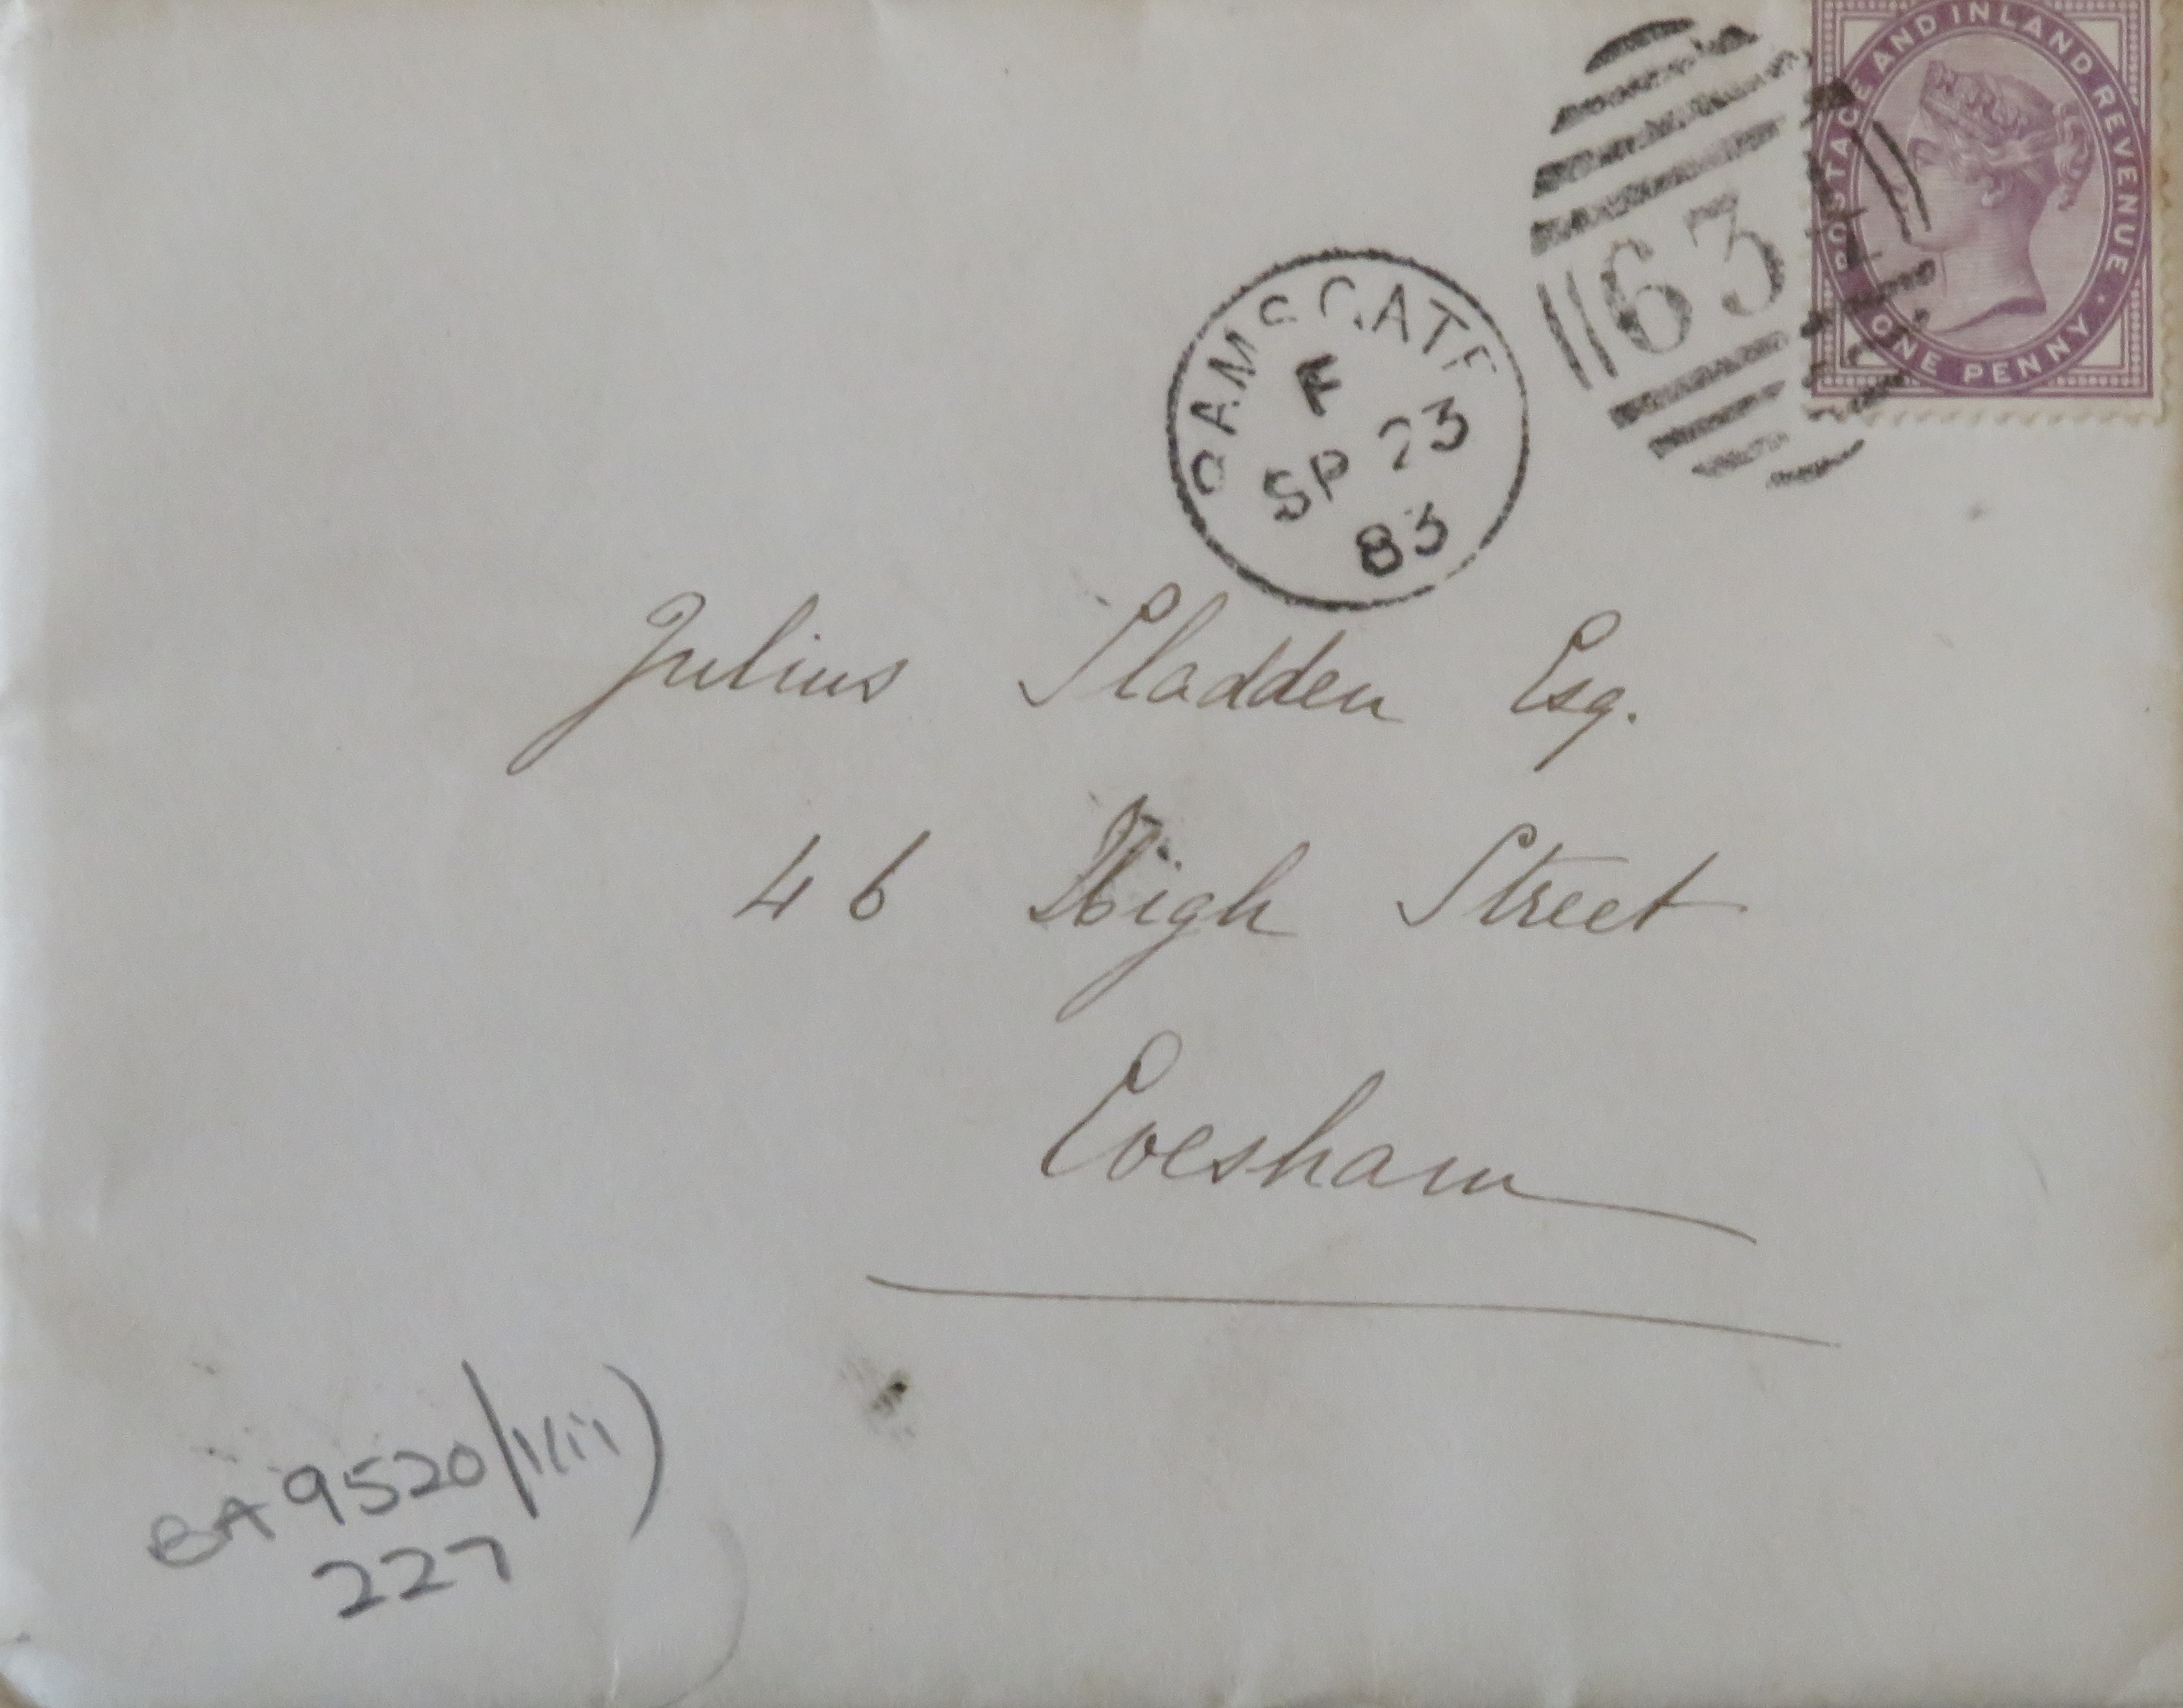 POSTAGE AND INLAND REVENUE.
ONE PENNY
63
RAMSGATE
F
SP 23
83
Julius Sladden Esq.
46 High Street
Evesham
BA 9520/1(ii)
227